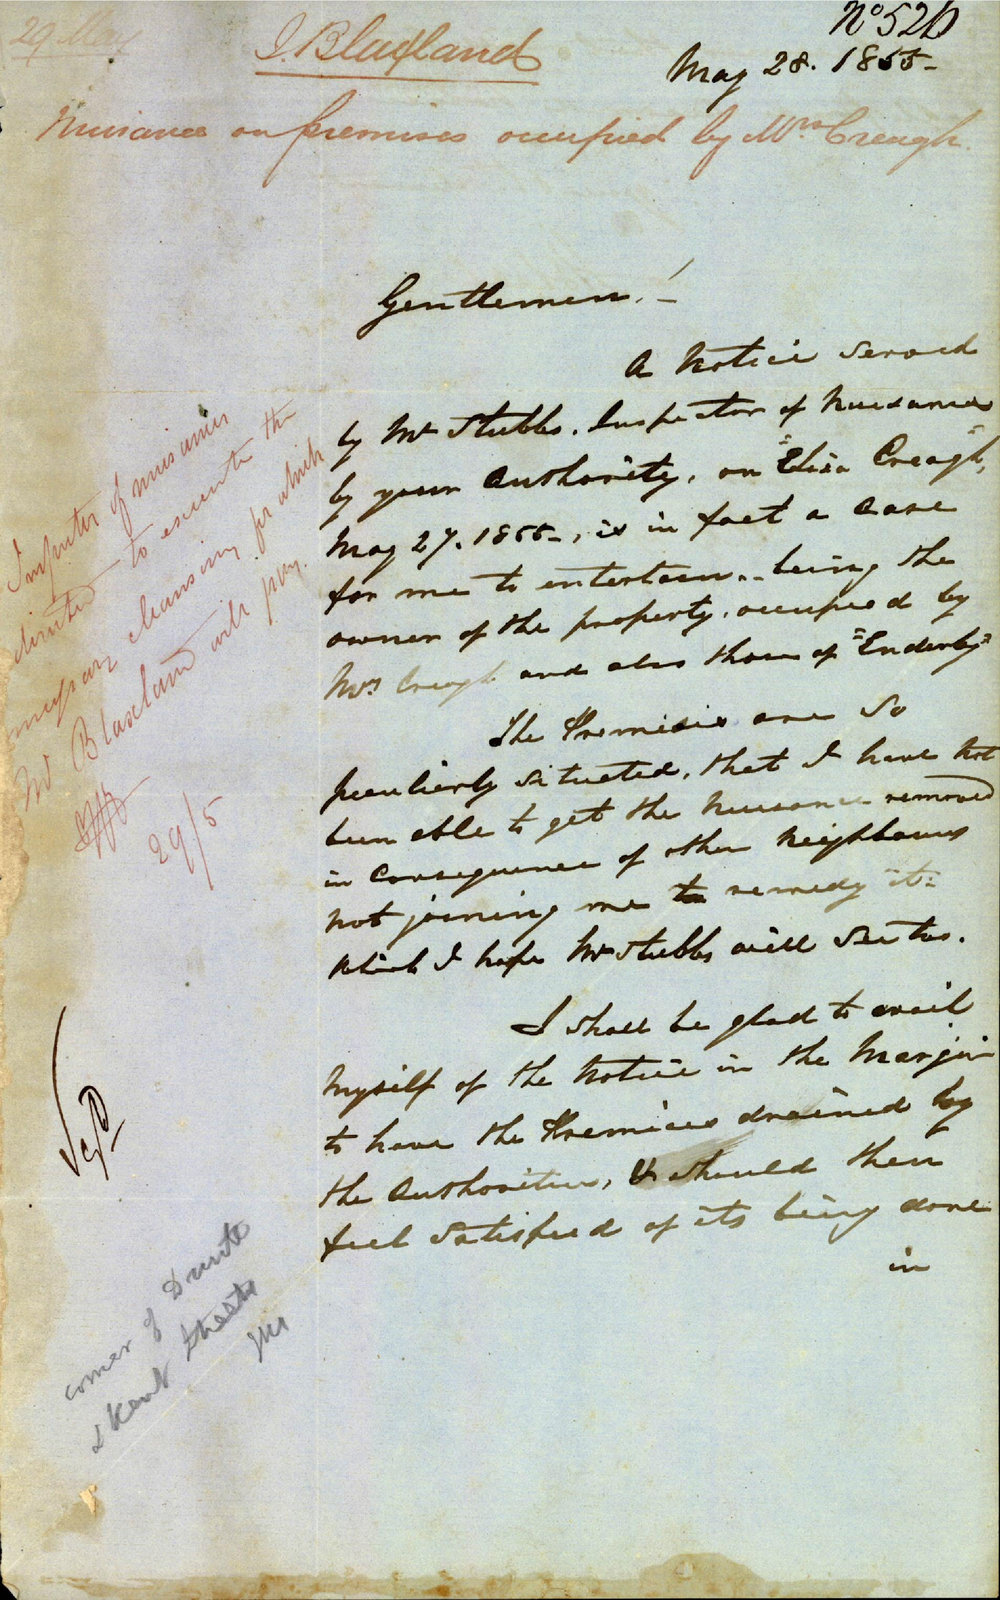 29 May
J. Blaxland
No 526
May 28. 1855-
Nuisance on premises occupied by Mrs Creagh.
Gentlemen!-
A Notice Served
by Mr Stubbs. Inspector of Nuisances
by your Authority, on "Eliza Creagh",
May 27. 1855-, is in fact a Case
for me to entertain.. being the
owner of the property. occupied by
Mrs Creagh and also those of "Enderby"
The Premisis are So
peculiarly Situated, that I have not
been able to get the Nuisance removed
in Consequence of other Neighbours
not joining me to remedy it:
which I hope Mr Stubbs will See too.
I shall be glad to avail
myself of the Notice in the Margin
to have the Premises drained by
the Authorities, & should then
feel Satisfied of its being done
in
Inspector of nuisances
directed to execute the
necessary cleansing for which
Mr Blaxland will pay.
29/5
corner of Druitt
& Kent Streets